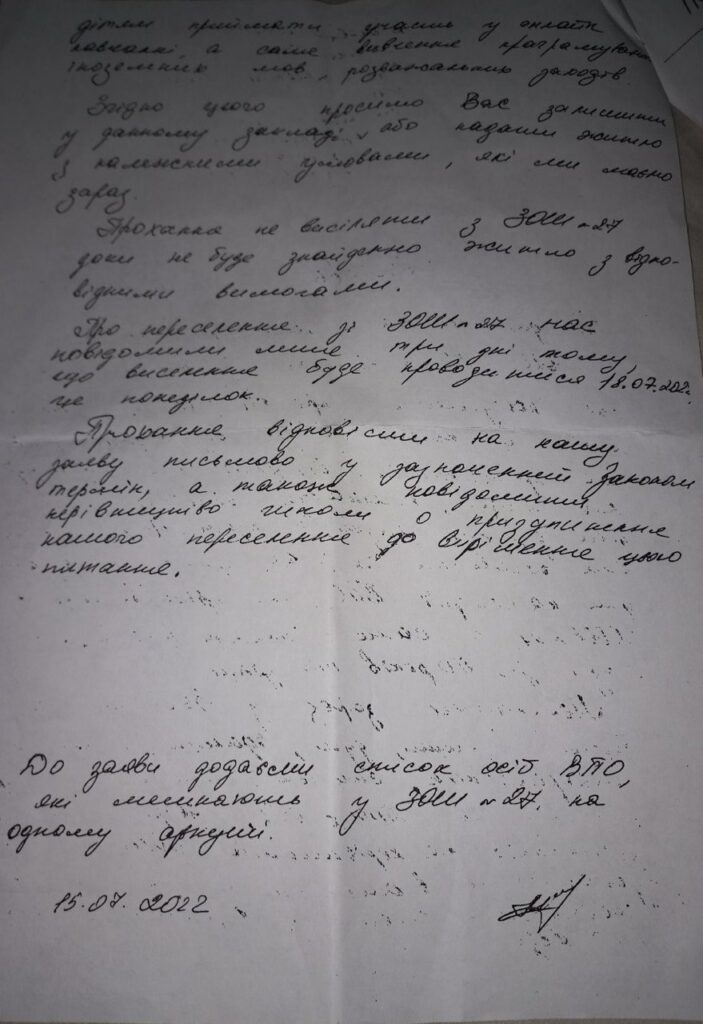 дітям приймати участь у онлайн
навчанні, а саме вивчення програмування
іноземних мов, розважальних заходів.
Згідно цього просимо Вас залишити
у данному закладі, або надати житло
з належними умовами, які ми маємо
зараз.
Прохання не висиляти з ЗОШ №27
доки не буде знайденно житло з відпо-
відними вимогами.
Про переселення зі ЗОШ №27 нас
повідомили лише три дні тому,
що виселення буде проводитися 18.07.202
це понеділок.
Прохання відповісти на нашу
заяву письмово у зазначенний Законом
термін, а також повідомити
керівництво школи о призупинення
нашого переселення до вірішення цього
питання.
До заяви додаєми список осіб ВПО,
які мешкають у ЗОШ №27, на
одному аркуші.
15.07.2022